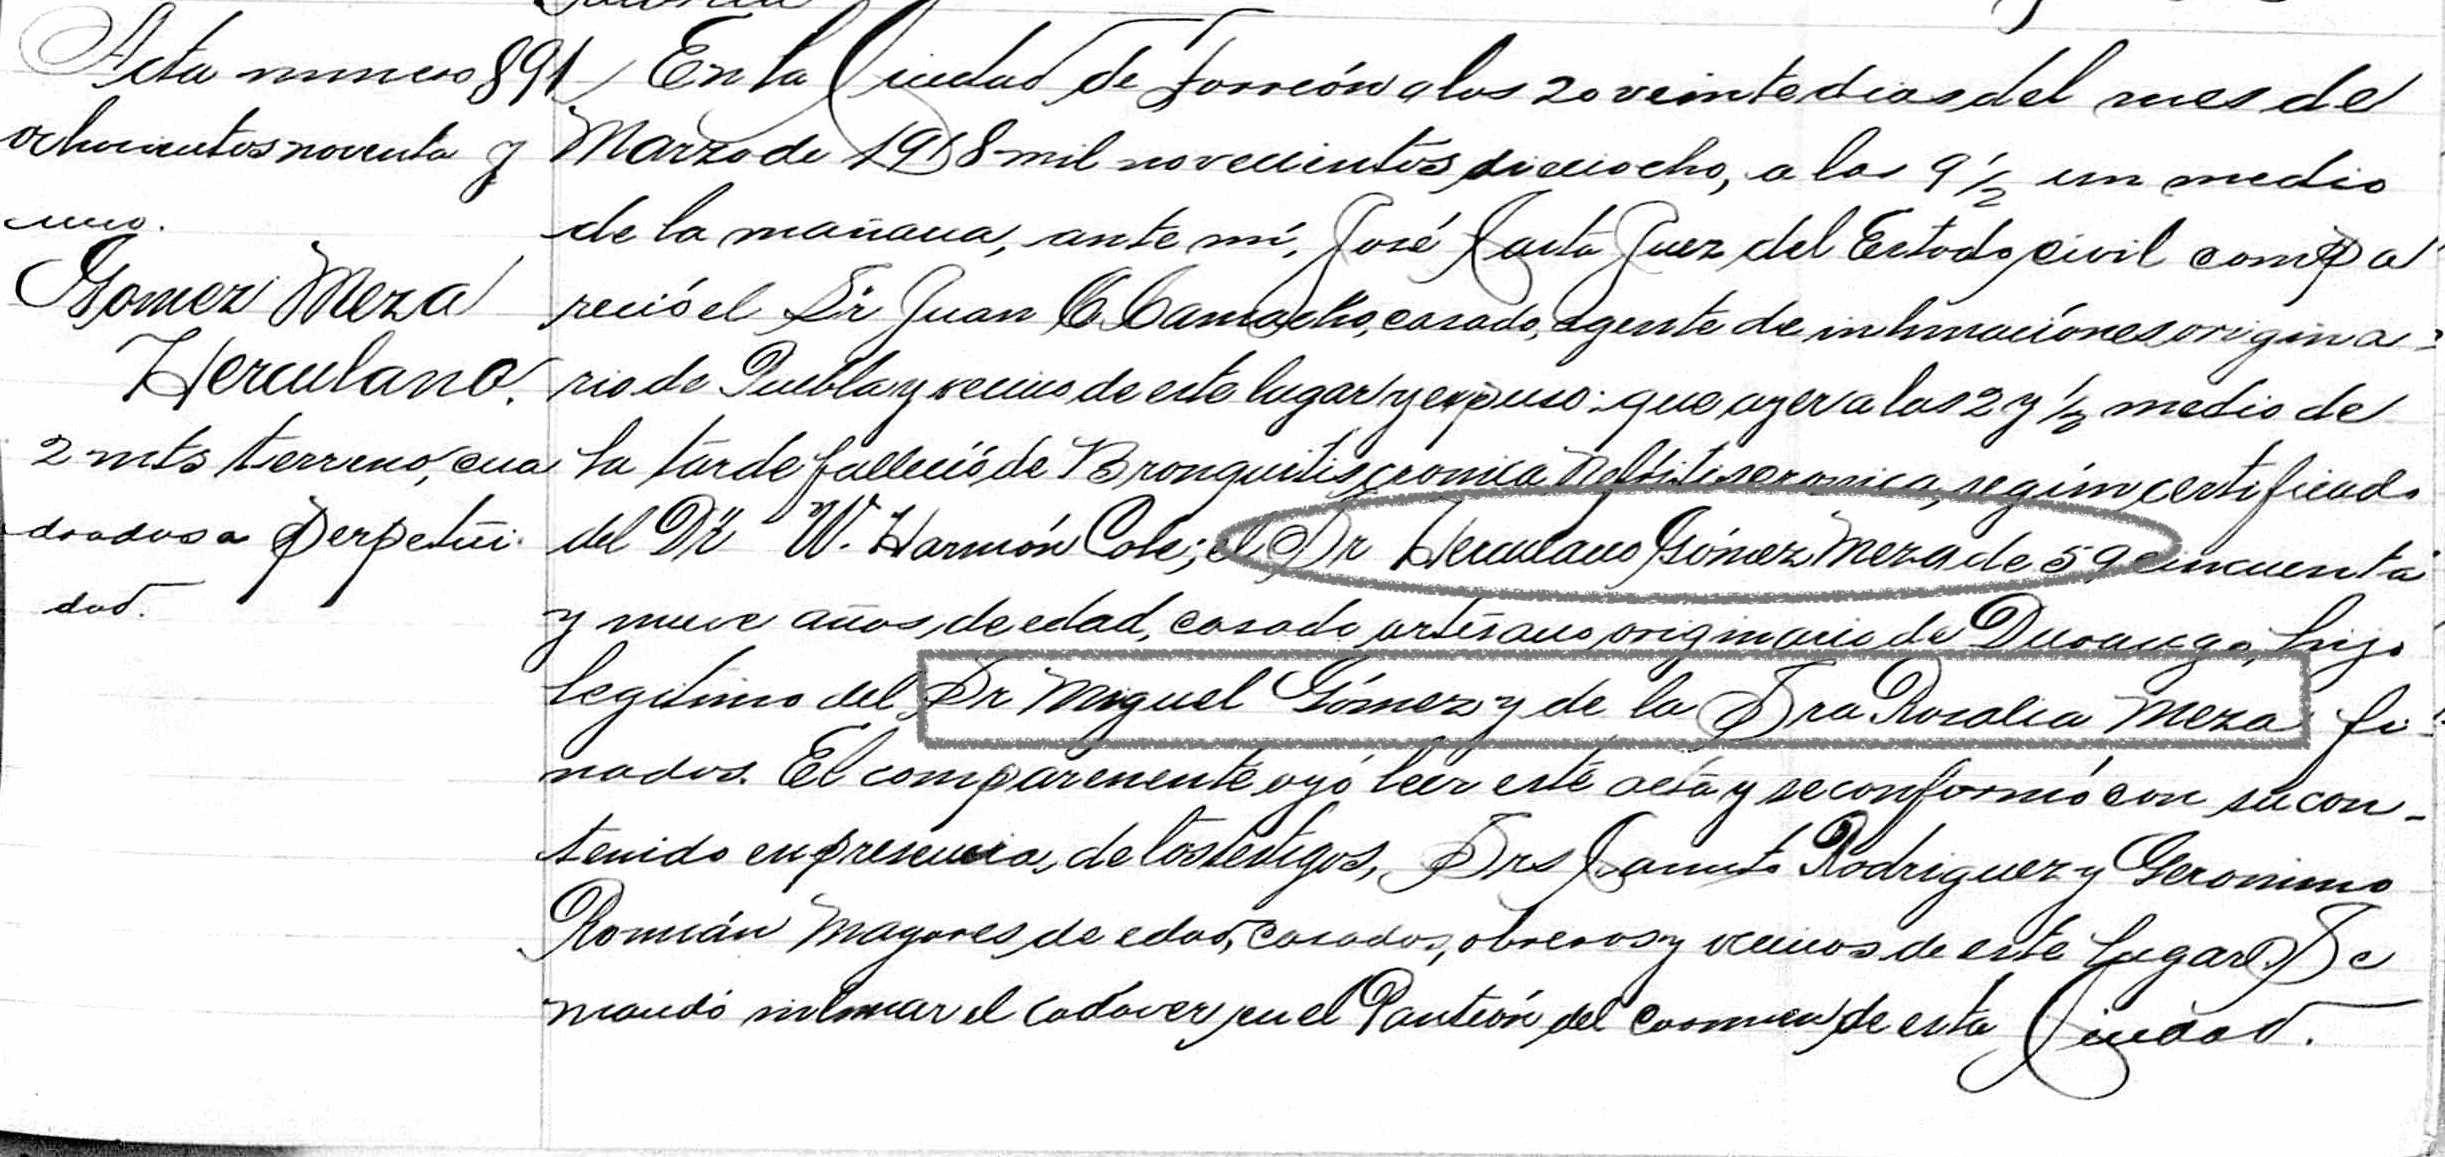 Acta numero 891
ochocientos noventa y
uno.
Gomez Meza
Herculano.
2 mts terreno, cua
drados a perpetui
dad.
En la Ciudad de Torreón a los 20 veinte dias del mes de
Marzo de 1918 mil novecientos dieciocho, a las 9 1/2 un medio
de la mañana, ante mi, José Juez del Estado civil compa
reció el Sr Juan C. Camacho, casado, agente de inhumaciones origina-
rio de Puebla y vecino de este lugar y expuso: que ayer a las 2 y 1/2 medio de
la tarde falleció de Bronquitis cronica Nefritis cronica, según certificado
del Dr W. Harmón Cole; el Sr Herculano Gómez Meza de 59 cincuenta
y nueve años, de edad, casado, artesano originario de Durango, hijo
legitimo del Sr Miguel Gómez y de la Sra Rosalia Meza fi-
nados. El comparenente oyó leer este acta y se conformó con su con-
tenido en presencia, de los testigos, Srs Canuto Rodriguez y Geronimo
Román Mayores de edad, casados, obreros y vecinos de este lugar. Se
mandó inhumar el cadaver, en el Panteón del Carmen de esta Ciudad.